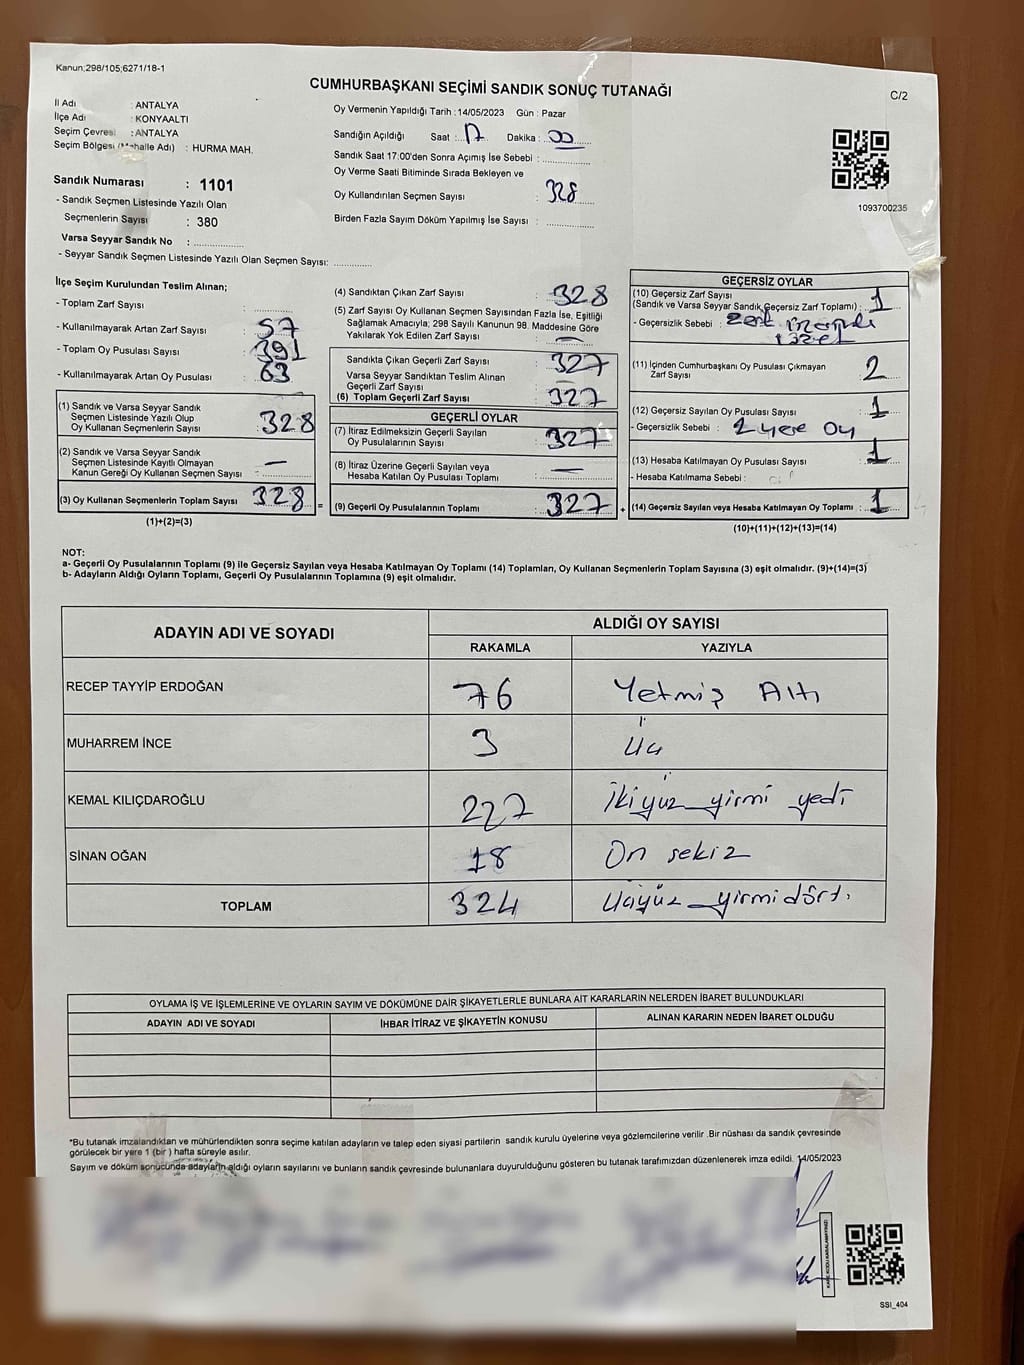 Kanun;298/105;6271/18-1
CUMHURBAŞKANI SEÇİMİ SANDIK SONUÇ TUTANAĞI
C/2
İl Adı : ANTALYA
İlçe Adı : KONYAALTI
Seçim Çevresi : ANTALYA
Seçim Bölgesi (Mahalle Adı) : HURMA MAH.
Sandık Numarası : 1101
- Sandık Seçmen Listesinde Yazılı Olan
Seçmenlerin Sayısı : 380
Varsa Seyyar Sandık No : ................
- Seyyar Sandık Seçmen Listesinde Yazılı Olan Seçmen Sayısı: ............
Oy Vermenin Yapıldığı Tarih : 14/05/2023 Gün : Pazar
Sandığın Açıldığı Saat : 17 Dakika : 00
Sandık Saat 17:00'den Sonra Açımış İse Sebebi : ................
Oy Verme Saati Bitiminde Sırada Bekleyen ve
Oy Kullandırılan Seçmen Sayısı : 328
Birden Fazla Sayım Döküm Yapılmış İse Sayısı : ................
1093700235
İlçe Seçim Kurulundan Teslim Alınan;
- Toplam Zarf Sayısı : ................
- Kullanılmayarak Artan Zarf Sayısı : 57
- Toplam Oy Pusulası Sayısı : 391
- Kullanılmayarak Artan Oy Pusulası : 63
(1) Sandık ve Varsa Seyyar Sandık
Seçmen Listesinde Yazılı Olup
Oy Kullanan Seçmenlerin Sayısı : 328
(2) Sandık ve Varsa Seyyar Sandık
Seçmen Listesinde Kayıtlı Olmayan
Kanun Gereği Oy Kullanan Seçmen Sayısı : —
(3) Oy Kullanan Seçmenlerin Toplam Sayısı 328
(1)+(2)=(3)
=
(4) Sandıktan Çıkan Zarf Sayısı : 328
(5) Zarf Sayısı Oy Kullanan Seçmen Sayısından Fazla İse, Eşitliği
Sağlamak Amacıyla; 298 Sayılı Kanunun 98. Maddesine Göre
Yakılarak Yok Edilen Zarf Sayısı : —
Sandıkta Çıkan Geçerli Zarf Sayısı : 327
Varsa Seyyar Sandıktan Teslim Alınan
Geçerli Zarf Sayısı : —
(6) Toplam Geçerli Zarf Sayısı : 327
GEÇERLİ OYLAR
(7) İtiraz Edilmeksizin Geçerli Sayılan
Oy Pusulalarının Sayısı : 327
(8) İtiraz Üzerine Geçerli Sayılan veya
Hesaba Katılan Oy Pusulası Toplamı : —
(9) Geçerli Oy Pusulalarının Toplamı : 327
+
GEÇERSİZ OYLAR
(10) Geçersiz Zarf Sayısı
(Sandık ve Varsa Seyyar Sandık Geçersiz Zarf Toplamı) : 1
- Geçersizlik Sebebi :
(11) İçinden Cumhurbaşkanı Oy Pusulası Çıkmayan
Zarf Sayısı : 2
(12) Geçersiz Sayılan Oy Pusulası Sayısı : 1
- Geçersizlik Sebebi : 2 yere oy
(13) Hesaba Katılmayan Oy Pusulası Sayısı : 1
- Hesaba Katılmama Sebebi :
(14) Geçersiz Sayılan veya Hesaba Katılmayan Oy Toplamı : 1
(10)+(11)+(12)+(13)=(14)
NOT:
a- Geçerli Oy Pusulalarının Toplamı (9) ile Geçersiz Sayılan veya Hesaba Katılmayan Oy Toplamı (14) Toplamları, Oy Kullanan Seçmenlerin Toplam Sayısına (3) eşit olmalıdır. (9)+(14)=(3)
b- Adayların Aldığı Oyların Toplamı, Geçerli Oy Pusulalarının Toplamına (9) eşit olmalıdır.
ADAYIN ADI VE SOYADI
ALDIĞI OY SAYISI
RAKAMLA YAZIYLA
RECEP TAYYİP ERDOĞAN 76 Yetmiş Altı
MUHARREM İNCE 3 Üç
KEMAL KILIÇDAROĞLU 227 İkiyüz yirmi yedi
SİNAN OĞAN 18 On sekiz
TOPLAM 324 Üçyüz yirmidört.
OYLAMA İŞ VE İŞLEMLERİNE VE OYLARIN SAYIM VE DÖKÜMÜNE DAİR ŞİKAYETLERLE BUNLARA AİT KARARLARIN NELERDEN İBARET BULUNDUKLARI
ADAYIN ADI VE SOYADI İHBAR İTİRAZ VE ŞİKAYETİN KONUSU ALINAN KARARIN NEDEN İBARET OLDUĞU
*Bu tutanak imzalandıktan ve mühürlendikten sonra seçime katılan adayların ve talep eden siyasi partilerin sandık kurulu üyelerine veya gözlemcilerine verilir .Bir nüshası da sandık çevresinde
görülecek bir yere 1 (bir ) hafta süreyle asılır.
Sayım ve döküm sonucunda adayların aldığı oyların sayılarını ve bunların sandık çevresinde bulunanlara duyurulduğunu gösteren bu tutanak tarafımızdan düzenlenerek imza edildi. 14/05/2023
KARE KODU KARALAMAYINIZ!
SSI_404